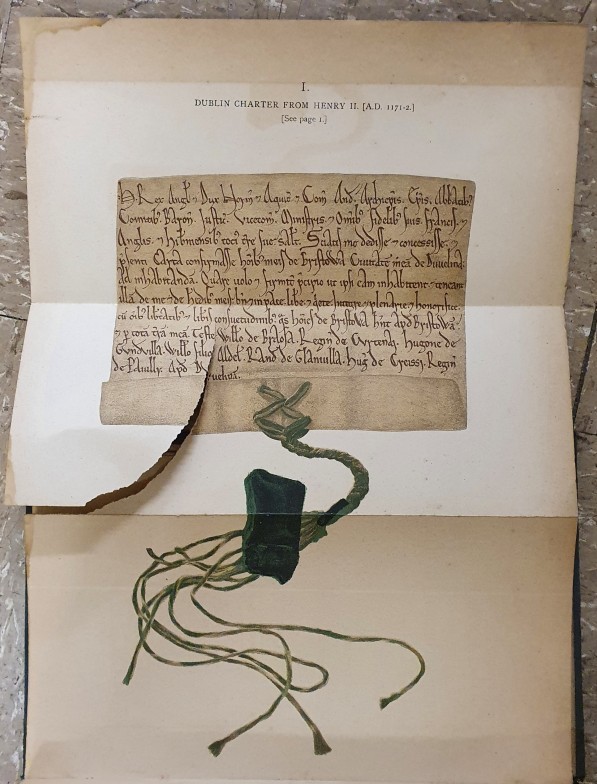 I.
DUBLIN CHARTER FROM HENRY II. [A.D. 1171-2.]
[See page 1.]
H. Rex Angl⁊ Dux Norm ⁊ Aquit ⁊ Com And. Archiepis. Epis. Abbatib⁊
Comitib⁊ Baron. Justic. Vicecom. Ministris ⁊ Omib⁊ fidelib⁊ suis. Francis. ⁊
Anglis. ⁊ hibnensib⁊ toci⁊ t're sue Salt. Sciatis me dedisse ⁊ concessisse. ⁊
p'senti Carta confirmasse hoib⁊ meis de Bristowa Civitate mea de Duvelina.
ad inhabitanda. Quare volo ⁊ firmit' p'cipio ut ipsi eam inhabitent. ⁊ teneant
illa de me ⁊ de hedib⁊ meis bn ⁊ in pace. libe. ⁊ q'ete. integre ⁊ plenarie ⁊ honorifice.
cu oib⁊ lib'tatib⁊ ⁊ lib'is consuetudinib⁊ q's hoies de Bristowa h'nt apd Bristowa
⁊ p tota t'ra mea. Teste Willo de
Regin de Curtenay. Hugone de
Gundevilla. Willo filio Aldel. Rand de Glanvilla. Hug de Creissi. Regin
de Pavilly. Apd